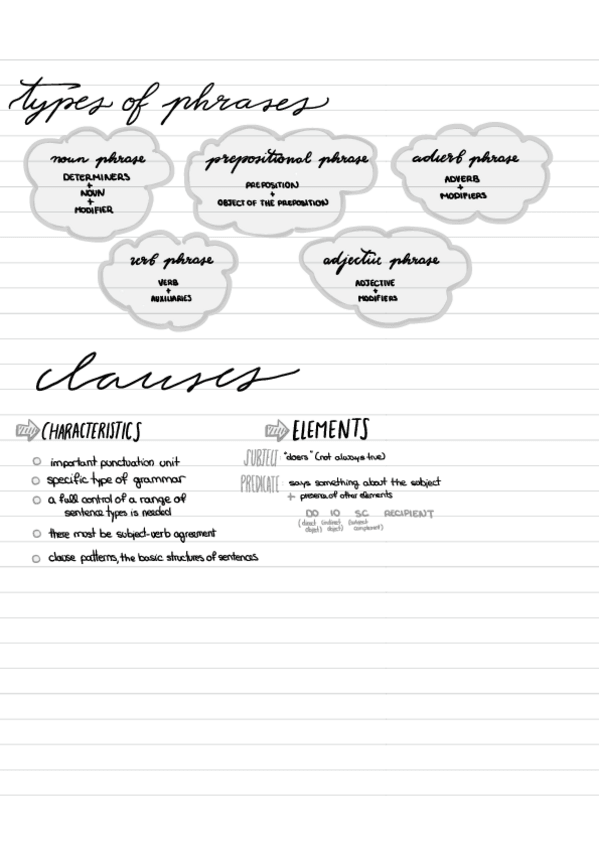 types of phrases
noun phrase
DETERMINERS
+
NOUN
+
MODIFIER
prepositional phrase
PREPOSITION
+
OBJECT OF THE PREPOSITION
adverb phrase
ADVERB
+
MODIFIERS
verb phrase
VERB
+
AUXILIARIES
adjective phrase
ADJECTIVE
+
MODIFIERS
clauses
CHARACTERISTICS
important punctuation unit
specific type of grammar
a full control of a range of
sentence types is needed
there must be subject-verb agreement
clause patterns, the basic structures of sentences
ELEMENTS
SUBJECT: "doers" (not always true)
PREDICATE: says something about the subject
+ presence of other elements
DO IO SC RECIPIENT
(direct object) (indirect object) (subject complement)